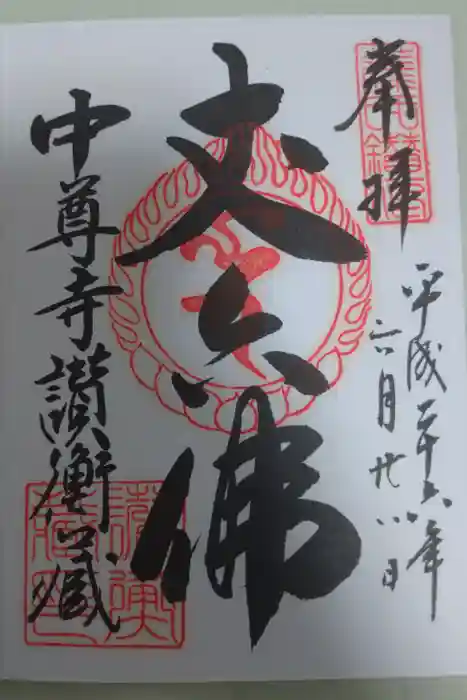 奉拝
平成二十六年
六月廿八日
丈六佛
中尊寺讃衡蔵